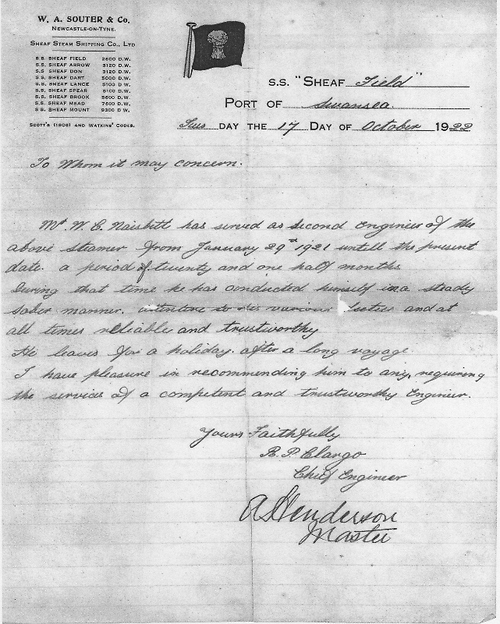 W. A. SOUTER & Co.
NEWCASTLE-ON-TYNE.
SHEAF STEAM SHIPPING CO., LTD
S.S. SHEAF FIELD 2600 D.W.
S.S. SHEAF ARROW 3120 D.W.
S.S. SHEAF DON 3120 D.W.
S.S. SHEAF DART 5000 D.W.
S.S. SHEAF LANCE 5100 D.W.
S.S. SHEAF SPEAR 6100 D.W.
S.S. SHEAF BROOK 5600 D.W.
S.S. SHEAF MEAD 7600 D.W.
S.S. SHEAF MOUNT 9300 D.W.
SCOTT'S (1906) AND WATKINS' CODES.
S.S. "SHEAF Field"
PORT OF Swansea.
Tues DAY THE 17 DAY OF October 1922
To Whom it may concern.
Mr. W. E. Naisbitt has served as Second Engineer of the
above steamer from January 29th 1921 untill the present
date. a period of twenty and one half months
During that time he has conducted himself in a steady
sober manner. attentive to his various duties and at
all times reliable and trustworthy
He leaves for a holiday. after a long voyage
I have pleasure in recommending him to any, requiring
the services of a competent and trustworthy Engineer.
Yours Faithfully
R. P. Clargo
Chief Engineer
A Henderson
Master